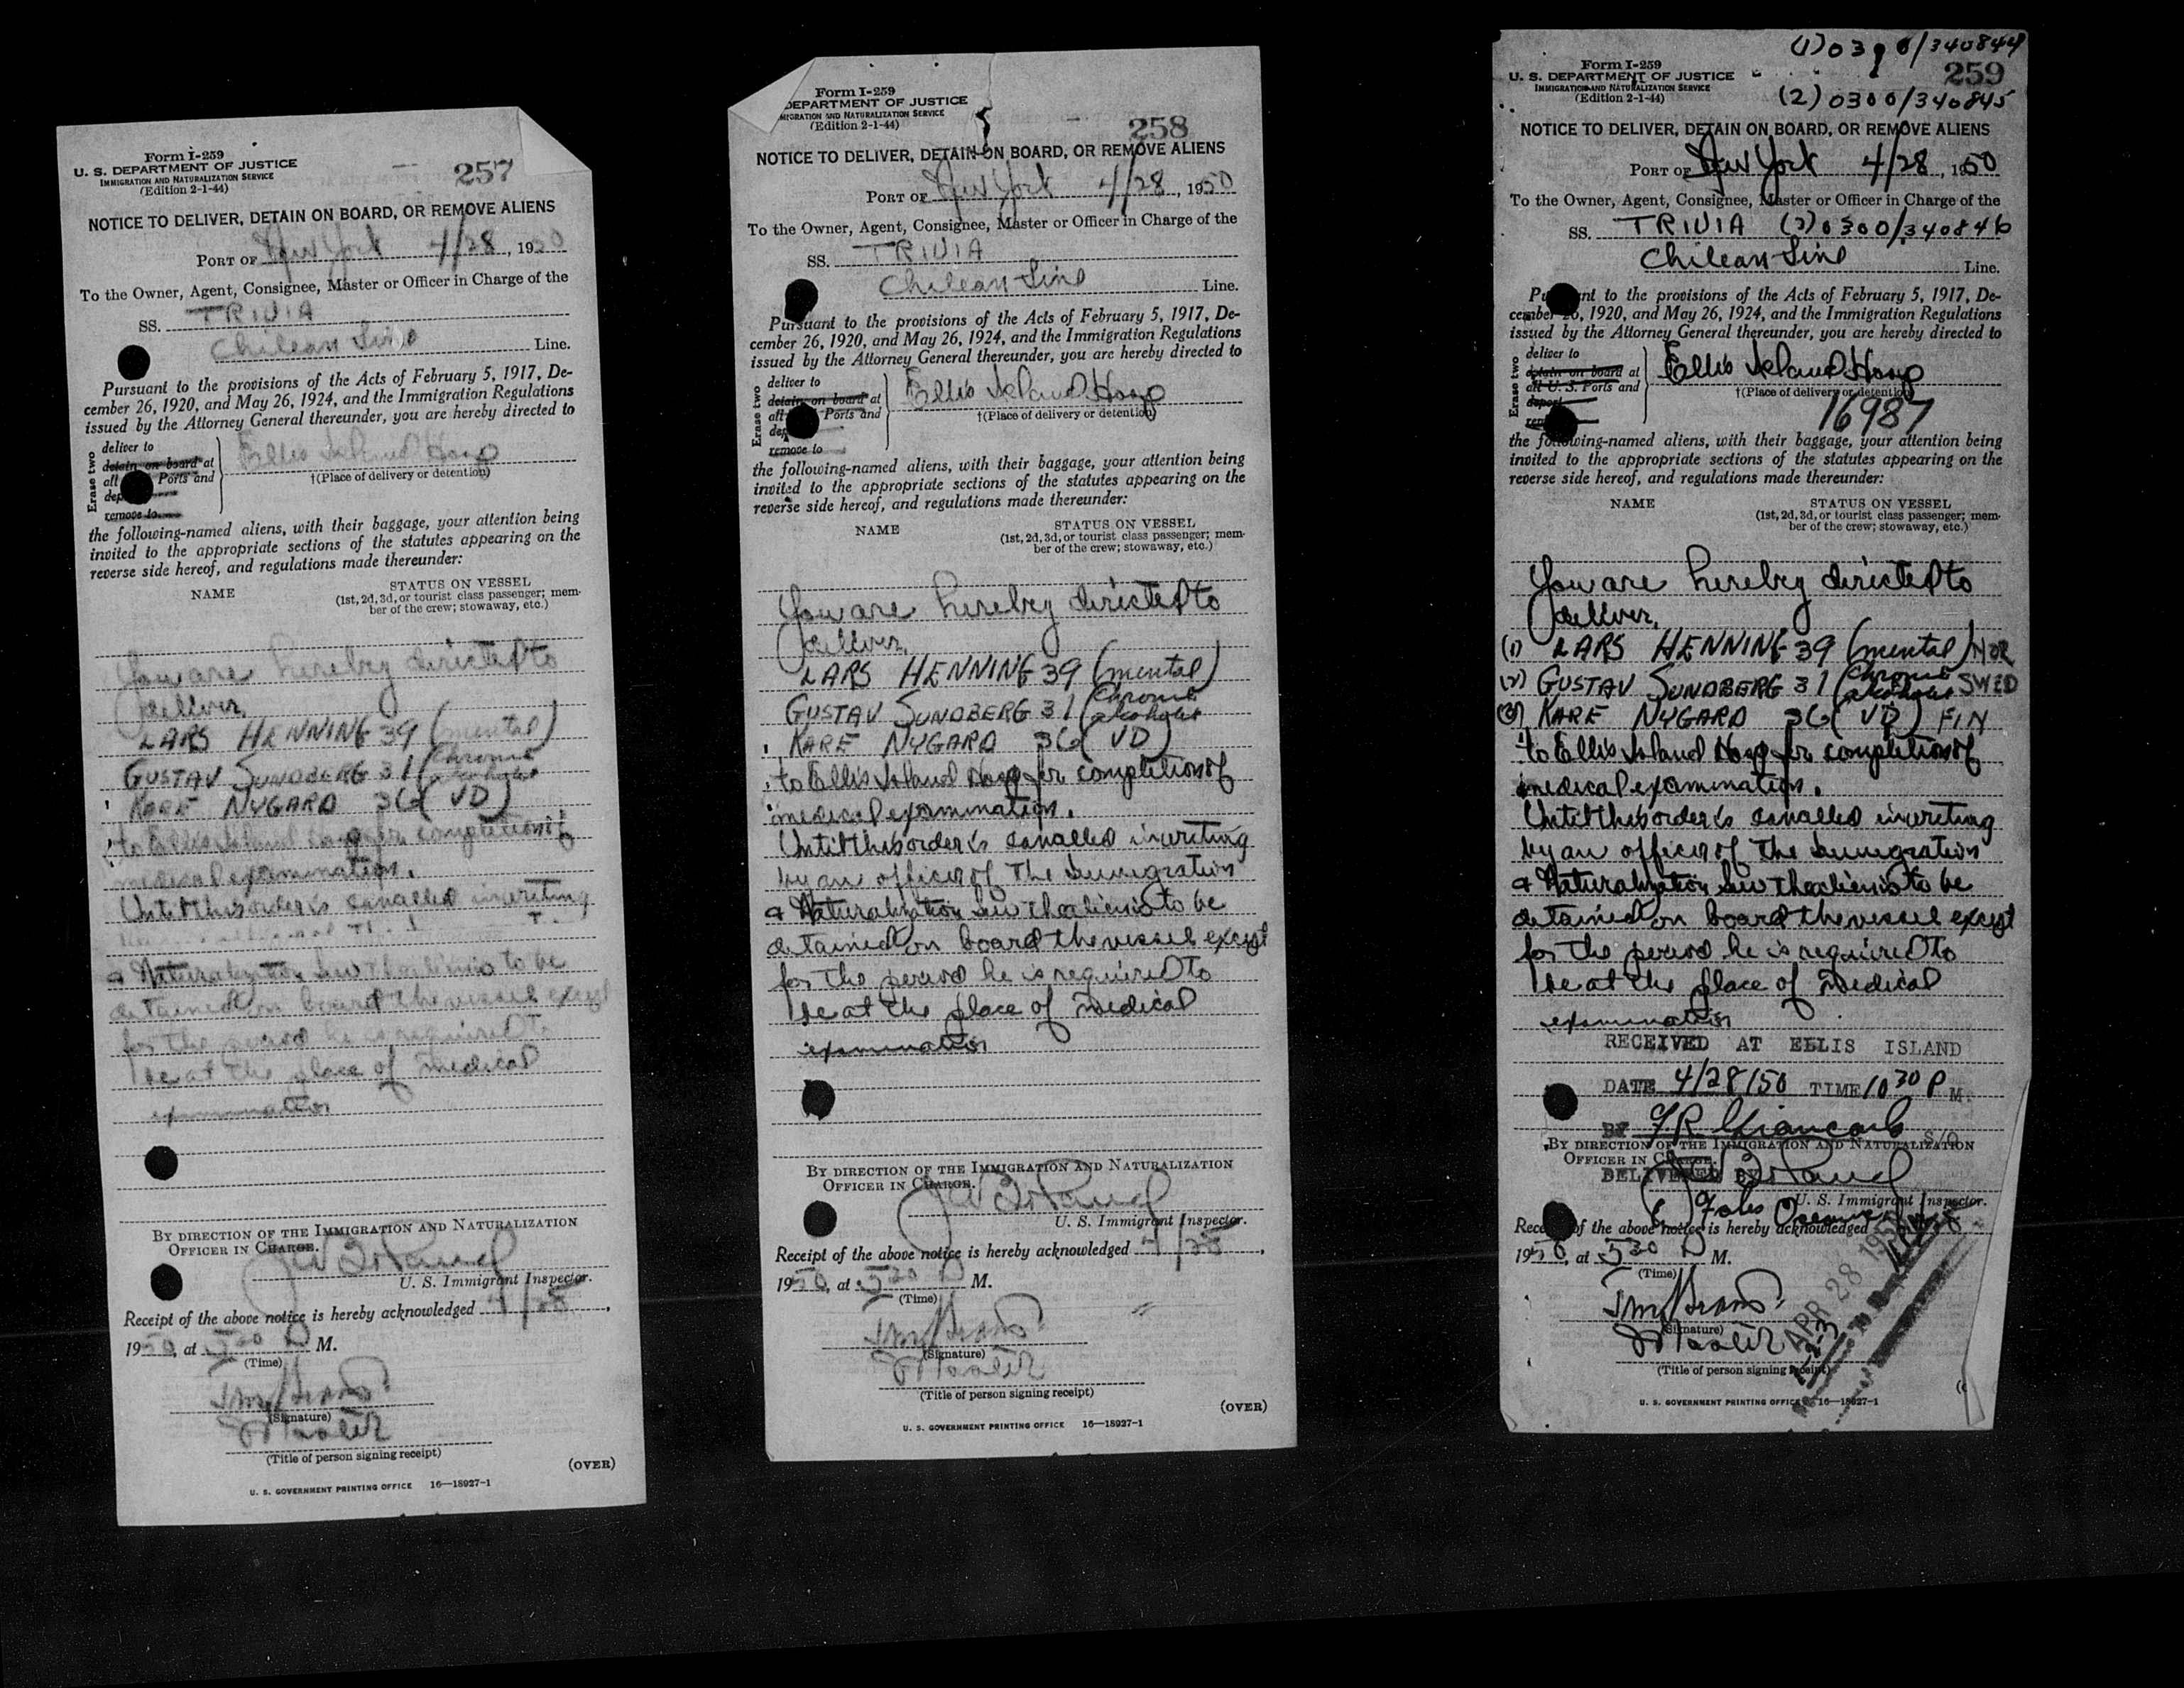 Form I-259
U. S. DEPARTMENT OF JUSTICE
IMMIGRATION AND NATURALIZATION SERVICE
(Edition 2-1-44)
257
NOTICE TO DELIVER, DETAIN ON BOARD, OR REMOVE ALIENS
PORT OF New York 4/28, 1950
To the Owner, Agent, Consignee, Master or Officer in Charge of the
SS. TRIVIA
Chilean Line Line.
Pursuant to the provisions of the Acts of February 5, 1917, De-
cember 26, 1920, and May 26, 1924, and the Immigration Regulations
issued by the Attorney General thereunder, you are hereby directed to
Erase two
deliver to
detain on board at
all Ports and
dep
remove to
Ellis Island Hosp
†(Place of delivery or detention)
the following-named aliens, with their baggage, your attention being
invited to the appropriate sections of the statutes appearing on the
reverse side hereof, and regulations made thereunder:
NAME STATUS ON VESSEL
(1st, 2d, 3d, or tourist class passenger; mem-
ber of the crew; stowaway, etc.)
You are hereby directed to
deliver,
LARS HENNING 39 (mental)
GUSTAV SUNDBERG 31 (Chronic alcoholic
KARE NYGARD 36 (VD)
to Ellis Island Hosp for completion of
medical examination.
Until this order is cancelled in writing
& Naturalization Serv the alien is to be
detained on board the vessel except
for the period he is required to
be at the place of medical
examination
BY DIRECTION OF THE IMMIGRATION AND NATURALIZATION
OFFICER IN CHARGE.
U. S. Immigrant Inspector.
Receipt of the above notice is hereby acknowledged 4/28,
1950, at 5 30 P M.
(Time)
(Signature)
Master
(Title of person signing receipt)
(OVER)
U. S. GOVERNMENT PRINTING OFFICE 16—18927-1
Form I-259
DEPARTMENT OF JUSTICE
MIGRATION AND NATURALIZATION SERVICE
(Edition 2-1-44)
258
NOTICE TO DELIVER, DETAIN ON BOARD, OR REMOVE ALIENS
PORT OF New York 4/28, 1950
To the Owner, Agent, Consignee, Master or Officer in Charge of the
SS. TRIVIA
Chilean Line Line.
Pursuant to the provisions of the Acts of February 5, 1917, De-
cember 26, 1920, and May 26, 1924, and the Immigration Regulations
issued by the Attorney General thereunder, you are hereby directed to
Erase two
deliver to
detain on board at
all Ports and
dep
remove to
Ellis Island Hosp
†(Place of delivery or detention)
the following-named aliens, with their baggage, your attention being
invited to the appropriate sections of the statutes appearing on the
reverse side hereof, and regulations made thereunder:
NAME STATUS ON VESSEL
(1st, 2d, 3d, or tourist class passenger; mem-
ber of the crew; stowaway, etc.)
You are hereby directed to
deliver,
LARS HENNING 39 (mental)
GUSTAV SUNDBERG 31 (Chronic alcoholic
KARE NYGARD 36 (VD)
to Ellis Island Hosp for completion of
medical examination.
Until this order is cancelled in writing
by an officer of the Immigration
& Naturalization Serv the alien is to be
detained on board the vessel except
for the period he is required to
be at the place of medical
examination
BY DIRECTION OF THE IMMIGRATION AND NATURALIZATION
OFFICER IN CHARGE.
U. S. Immigrant Inspector.
Receipt of the above notice is hereby acknowledged 4/28,
1950, at 5 30 P M.
(Time)
(Signature)
Master
(Title of person signing receipt)
(OVER)
U. S. GOVERNMENT PRINTING OFFICE 16—18927-1
(1) 0300/340844
Form I-259
U. S. DEPARTMENT OF JUSTICE
IMMIGRATION AND NATURALIZATION SERVICE
(Edition 2-1-44)
259
(2) 0300/340845
NOTICE TO DELIVER, DETAIN ON BOARD, OR REMOVE ALIENS
PORT OF New York 4/28, 1950
To the Owner, Agent, Consignee, Master or Officer in Charge of the
SS. TRIVIA (3) 0300/340846
Chilean Line Line.
Pursuant to the provisions of the Acts of February 5, 1917, De-
cember 26, 1920, and May 26, 1924, and the Immigration Regulations
issued by the Attorney General thereunder, you are hereby directed to
Erase two
deliver to
detain on board at
all U. S. Ports and
deport
rem
Ellis Island Hosp
†(Place of delivery or detention)
16987
the following-named aliens, with their baggage, your attention being
invited to the appropriate sections of the statutes appearing on the
reverse side hereof, and regulations made thereunder:
NAME STATUS ON VESSEL
(1st, 2d, 3d, or tourist class passenger; mem-
ber of the crew; stowaway, etc.)
You are hereby directed to
deliver,
(1) LARS HENNING 39 (mental) NOR
(2) GUSTAV SUNDBERG 31 (Chronic alcoholic SWED
(3) KARE NYGARD 36 (VD) FIN
to Ellis Island Hosp for completion of
medical examination.
Until this order is cancelled in writing
by an officer of the Immigration
& Naturalization Serv the alien is to be
detained on board the vessel except
for the period he is required to
be at the place of medical
examination
RECEIVED AT ELLIS ISLAND
DATE 4/28/50 TIME 10 30 P M.
BY
BY DIRECTION OF THE IMMIGRATION AND NATURALIZATION
OFFICER IN CHARGE.
DELIVERED BY
U. S. Immigrant Inspector.
Receipt of the above notice is hereby acknowledged
1950, at 5 30 P M.
(Time)
APR 28 1950
(Signature)
Master
(Title of person signing receipt)
U. S. GOVERNMENT PRINTING OFFICE 16—18927-1